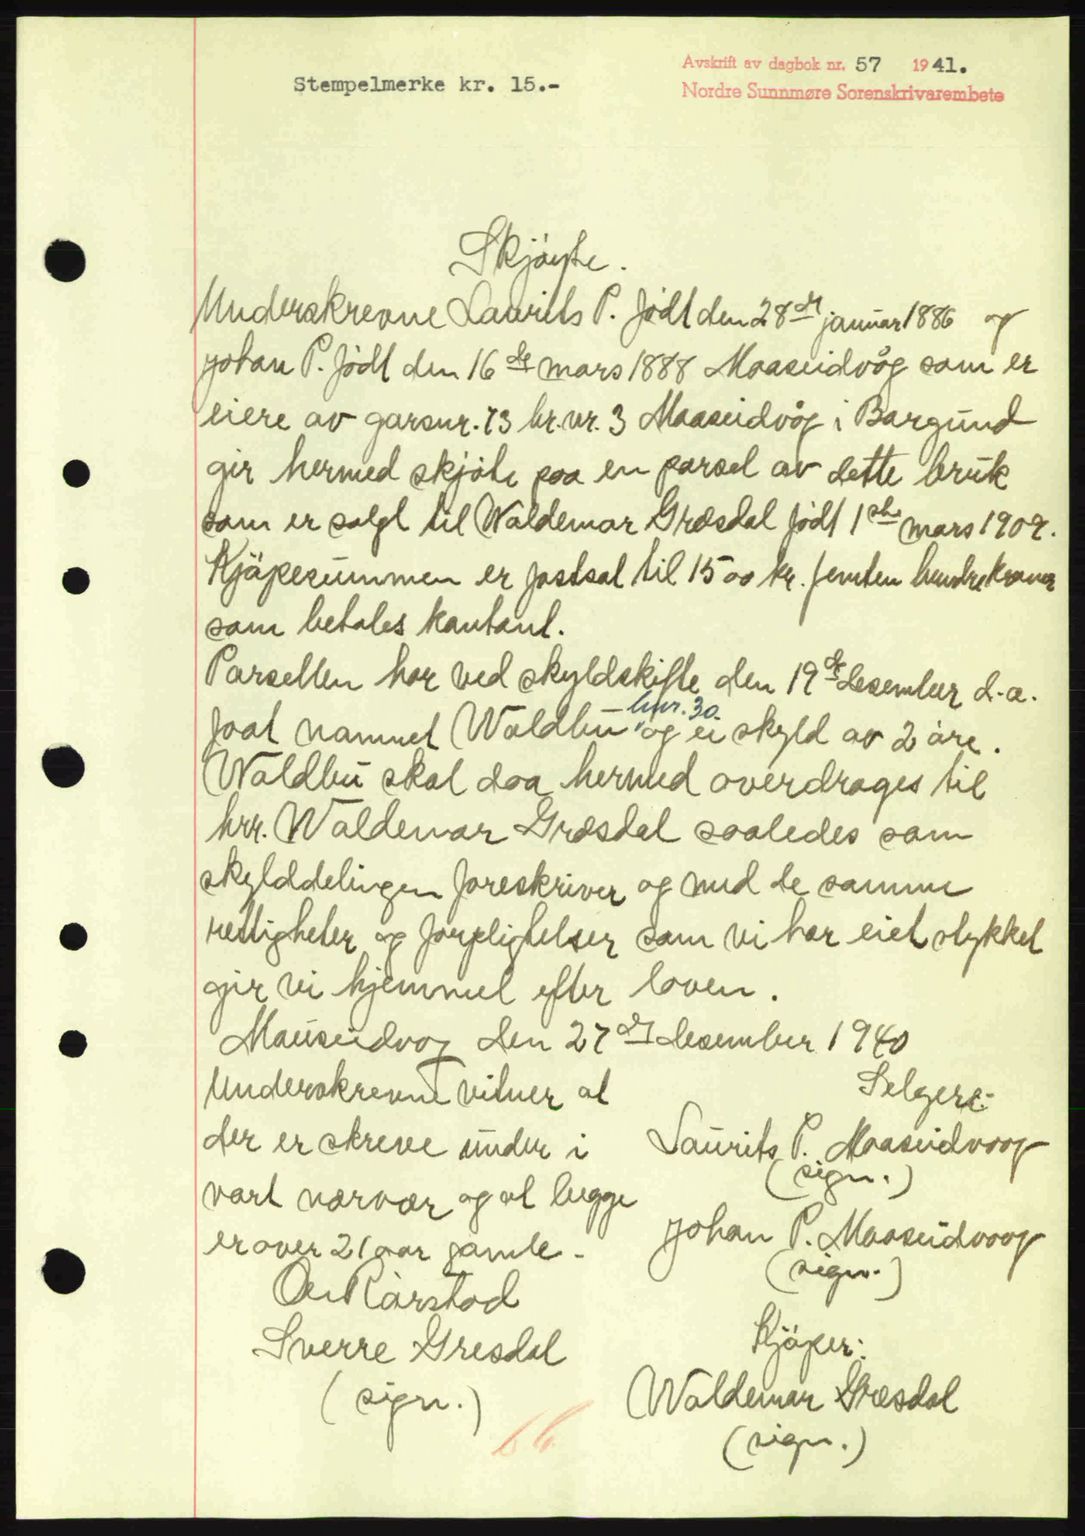 Stempelmerke kr. 15.-
Avskrift av dagbok nr. 57 1941.
Nordre Sunnmøre Sorenskrivarembete
Skjøyte.
Underskrevne Laurits P. født den 28de januar 1886 og
Johan P. født den 16de mars 1888 Maaseidvåg som er
eiere av garsnr. 73 br.nr. 3 Maaseidvåg i Borgund
gir hermed skjöte paa en parsel av dette bruk
som er solgt til Waldemar Græsdal født 1ste mars 1909.
Kjöpesummen er fastsat til 1500 kr. femten hundre kroner
som betales kontant.
Parsellen har ved skyldskifte den 19de desember d.a.
bnr. 30.
faat namnet Waldbu og ei skyld av 2 øre.
Waldbu skal daa hermed overdrages til
hrr. Waldemar Græsdal saaledes som
skylddelingen foreskriver og med de samme
rettigheter og forpligtelser som vi har eiet stykket
gir vi hjemmel efter loven.
Mauseidvog den 27de desember 1940
Underskrevne vitner at
der er skreve under i
vort nærvær og at begge
er over 21 aar gamle.
Selgere:
Laurits P. Maaseidvoog
(sign.)
Johan P. Maaseidvoog
(sign.)
Rørstad
Sverre Gresdal
(sign.)
Kjøper:
Waldemar Græsdal
(sign.)